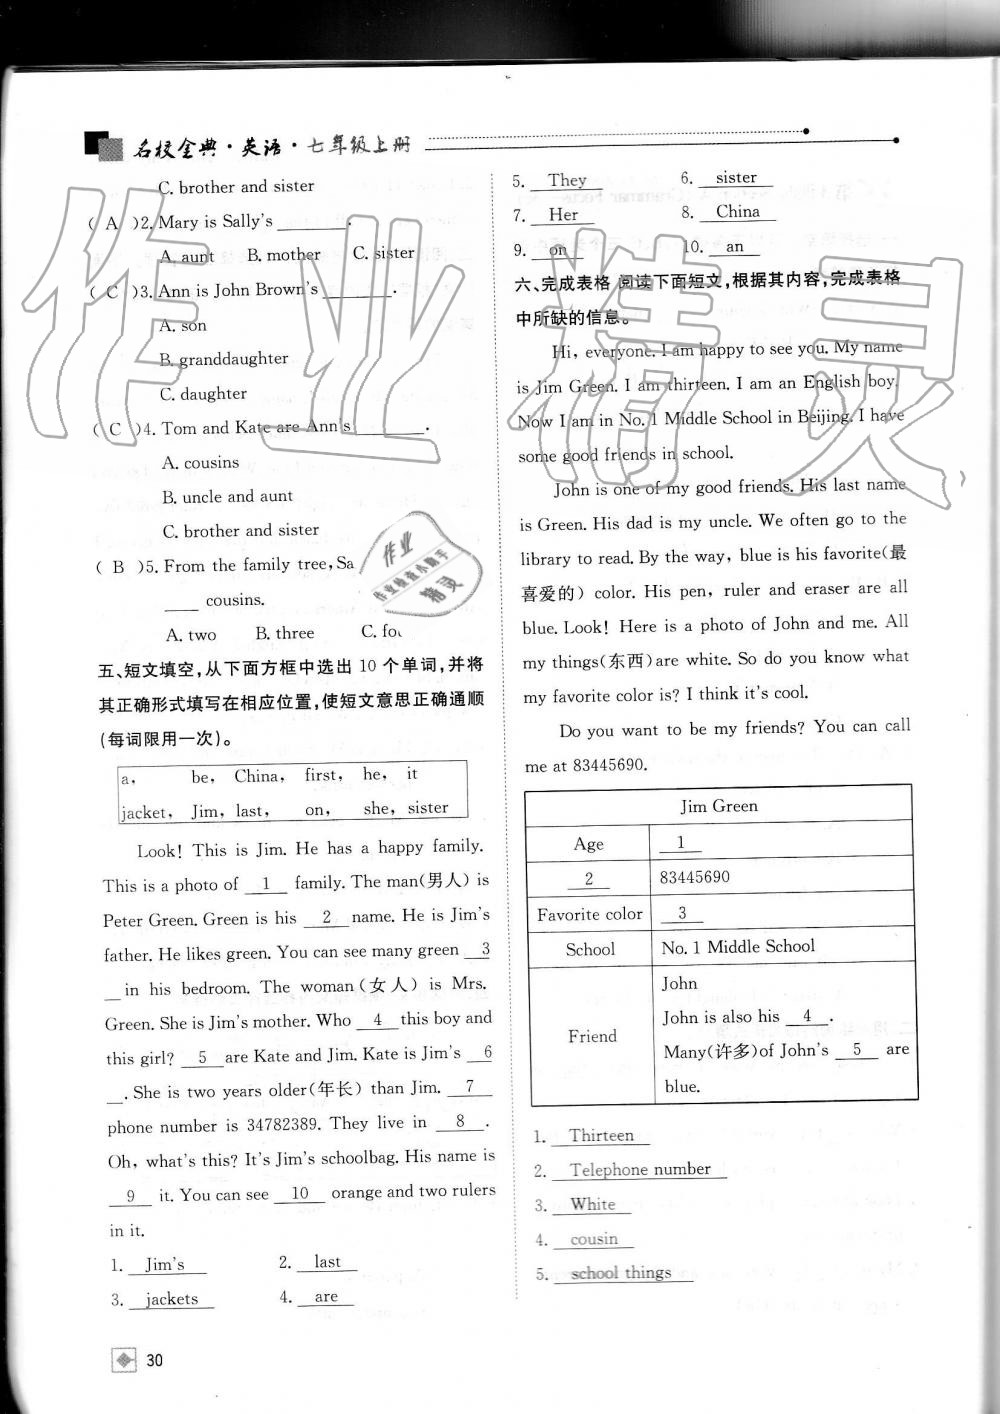 名校金典·英语·七年级上册
C. brother and sister
( A )2. Mary is Sally's ________.
A. aunt B. mother C. sister
( C )3. Ann is John Brown's ________.
A. son
B. granddaughter
C. daughter
( C )4. Tom and Kate are Ann's ________.
A. cousins
B. uncle and aunt
C. brother and sister
( B )5. From the family tree, Sa
____ cousins.
A. two B. three C.
五、短文填空,从下面方框中选出 10 个单词,并将
其正确形式填写在相应位置,使短文意思正确通顺
(每词限用一次)。
a, be, China, first, he, it
jacket, Jim, last, on, she, sister
Look! This is Jim. He has a happy family.
This is a photo of 1 family. The man(男人) is
Peter Green. Green is his 2 name. He is Jim's
father. He likes green. You can see many green 3
in his bedroom. The woman(女人) is Mrs.
Green. She is Jim's mother. Who 4 this boy and
this girl? 5 are Kate and Jim. Kate is Jim's 6
. She is two years older(年长) than Jim. 7
phone number is 34782389. They live in 8 .
Oh, what's this? It's Jim's schoolbag. His name is
9 it. You can see 10 orange and two rulers
in it.
1. Jim's 2. last
3. jackets 4. are
5. They 6. sister
7. Her 8. China
9. on 10. an
六、完成表格 阅读下面短文,根据其内容,完成表格
中所缺的信息。
Hi, everyone. I am happy to see you. My name
is Jim Green. I am thirteen. I am an English boy.
Now I am in No. 1 Middle School in Beijing. I have
some good friends in school.
John is one of my good friends. His last name
is Green. His dad is my uncle. We often go to the
library to read. By the way, blue is his favorite(最
喜爱的) color. His pen, ruler and eraser are all
blue. Look! Here is a photo of John and me. All
my things(东西)are white. So do you know what
my favorite color is? I think it's cool.
Do you want to be my friends? You can call
me at 83445690.
Jim Green
Age 1
2 83445690
Favorite color 3
School No. 1 Middle School
Friend
John
John is also his 4 .
Many(许多)of John's 5 are
blue.
1. Thirteen
2. Telephone number
3. White
4. cousin
5. school things
30
作业精灵
作业
作业检查小助手
精灵